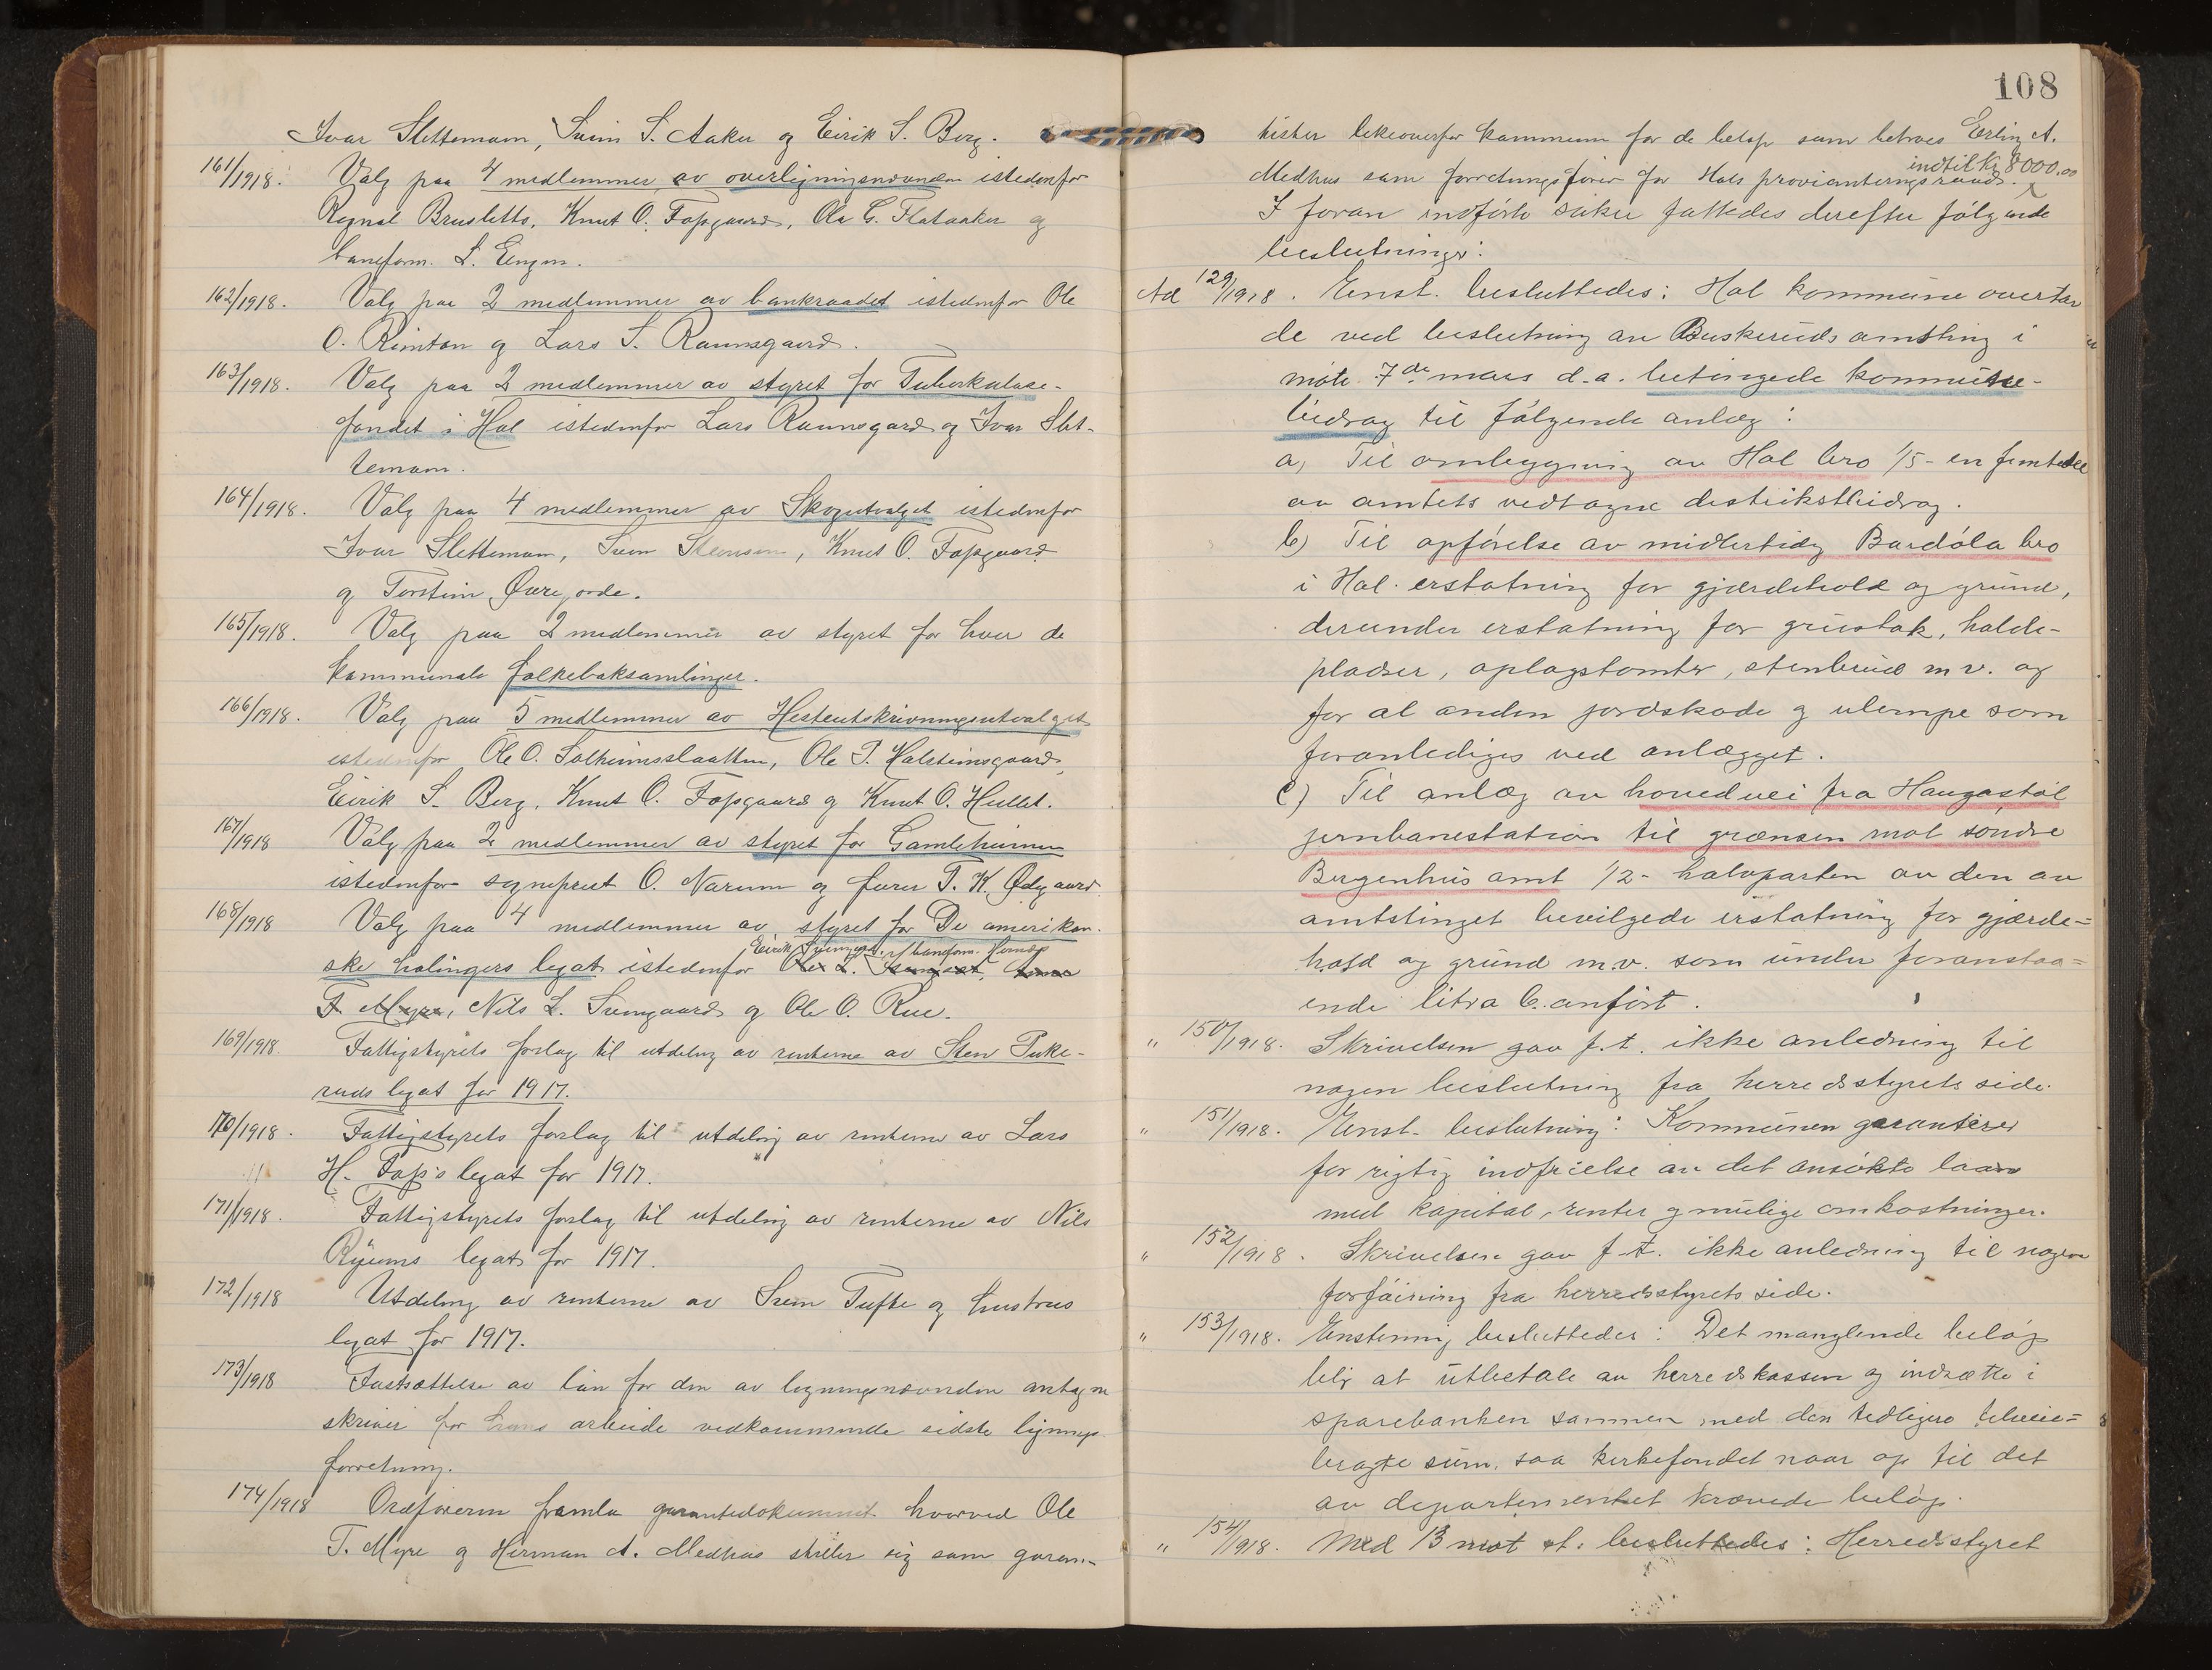 Ivar Slettemoen, Svein S. Aaker og Eirik S. Berg.
161/1918. Valg paa 4 medlemmer av overligningsnævnden istedenfor
Ragnal Brusletto, Knut O. Fopsgaard, Ole G. Flataaker og
baneform. L. Engen.
162/1918. Valg paa 2 medlemmer av bankraadet istedenfor Ole
O. Rimton og Lars S. Raunsgaard.
163/1918. Valg paa 2 medlemmer av styret for Tuberkulose-
fondet i Hol istedenfor Lars Raunsgard og Ivar Slet-
temoen.
164/1918. Valg paa 4 medlemmer av Skogutvalget istedenfor
Ivar Slettemoen, Svein Steinsen, Knut O. Fopsgaard
og Torstein Øvrejorde.
165/1918. Valg paa 2 medlemmer av styret for hver de
kommunale folkeboksamlinger.
166/1918. Valg paa 5 medlemmer av Hesteutskrivningsutvalget
istedenfor Ole O. Solheimsslaatten, Ole T. Halsteinsgaard,
Eirik S. Berg, Knut O. Fopsgaard og Knut O. Hullet.
167/1918 Valg paa 2 medlemmer av styret for Gamleheimen
istedenfor sogneprest O. Narum og furer T. K. Ødegaard.
168/1918 Valg paa 4 medlemmer av styret for De amerikan-
Eirik Sveingard, handm.
ske halingers legat istedenfor Ole L.
T. Myre, Nils L. Sveingaard og Ole O. Rue.
169/1918. Fattigstyrets forslag til utdeling av renterne av Sten Puke-
ruds legat for 1917.
170/1918. Fattigstyrets forslag til utdeling av renterne av Lars
H. Fop's legat for 1917.
171/1918. Fattigstyrets forslag til utdeling av renterne av Nils
Ryums legat for 1917.
172/1918 Utdeling av renterne av Svein Tufte og hustrus
legat for 1917.
173/1918 Fastsættelse av løn for den av ligningsnævnden antagne
skriver for hans arbeide vedkommende sidste lignings
forretning.
174/1918 Ordføreren framla garantidokument hvorved Ole
T. Myre og Herman A. Medhus stiller sig som garan-
108
tister likeoverfor kommunen for de beløp som betroes Erling A.
indtil kr 8000.00
Medhus som forretningsfører for Hols provianteringsraad.
I foran indførte saker fattedes derefter følgende
beslutninger:
Ad 129/1918. Enst. besluttedes: Hol kommune overtar
de ved beslutning av Buskeruds amtsting i
møte 7de mars d.a. betingede kommune-
bidrag til følgende anlæg:
a) Til omlægging av Hol bro 1/5 - en femtedel
av amtets vedtagne distriktsbidrag.
b) Til opførelse av midlertidig Bardøla bro
i Hol erstatning for gjærdehold og grund,
derunder erstatning for grustak, holde-
pladser, oplagstomter, stenbrud m v. og
for al anden jordskade og ulempe som
foranlediges ved anlægget.
c) Til anlæg av hovedvei fra Haugastøl
jernbanestation til grænsen mot søndre
Bergenhus amt 1/2 - halvparten av den av
amtstinget bevilgede erstatning for gjærde=
hold og grund m.v. som under foranstaa=
ende litra b. anført.
" 150/1918. Skrivelsen gav f.t. ikke anledning til
nogen beslutning fra herredsstyrets side.
" 151/1918. Enst. beslutning: Kommunen garanterer
for rigtig indfrielse av det ansøkte laan
med kapital, renter og mulige omkostninger.
" 152/1918. Skrivelsen gav f.t. ikke anledning til nogen
forføining fra herredsstyrets side.
" 153/1918. Enstemmig besluttedes: Det manglende beløp
blir at utbetale av herredskassen og indsætte i
sparebanken sammen med den tedligere tilveie=
bragte sum, saa kirkefondet naar op til det
av departementet krævede beløp.
" 154/1918. Med 13 mot st. besluttedes: Herredsstyret